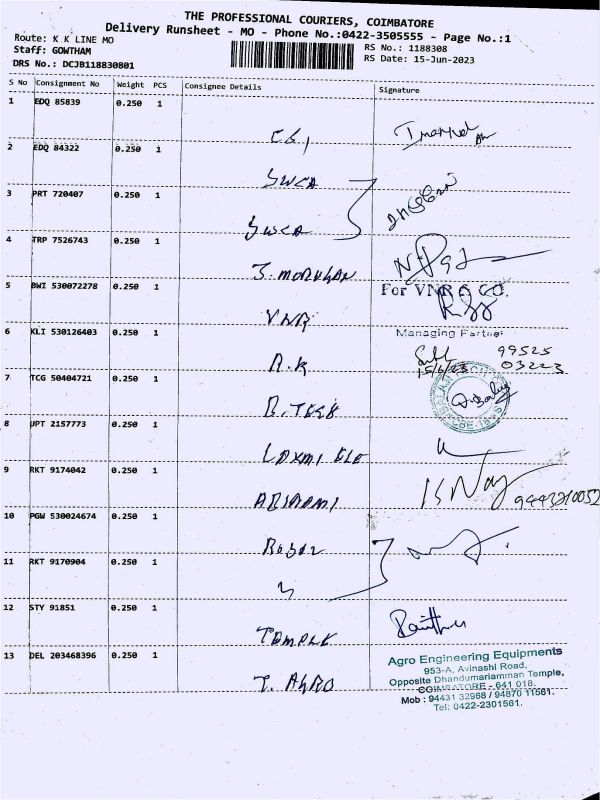 THE PROFESSIONAL COURIERS, COIMBATORE
Delivery Runsheet - MO - Phone No.:0422-3505555 - Page No.:1
Route: K K LINE MO
Staff: GOWTHAM
DRS No.: DCJB118830801
RS No.: 1188308
RS Date: 15-Jun-2023
S No Consignment No Weight PCS Consignee Details Signature
1 EDQ 85839 0.250 1
2 EDQ 84322 0.250 1
SWCA
3 PRT 720407 0.250 1
SWCA
4 TRP 7526743 0.250 1
J. MORUGAN
5 BWI 530072278 0.250 1 For VNR & CO.
VNR
Managing Partner
6 KLI 530126403 0.250 1 99525
15/6/23 03223
R.K
7 TCG 50404721 0.250 1
B. TECH
8 UPT 2157773 0.250 1
LAXMI ELE
9 RKT 9174042 0.250 1
9443210052
ABIRAMI
10 PGW 530024674 0.250 1
11 RKT 9170904 0.250 1
12 STY 91851 0.250 1
TEMPLE
13 DEL 203468396 0.250 1
T. AGRO
Agro Engineering Equipments
953-A, Avinashi Road,
Opposite Dhandumariamman Temple,
COIMBATORE - 641 018.
Mob : 94431 32968 / 94870 11561.
Tel: 0422-2301561.